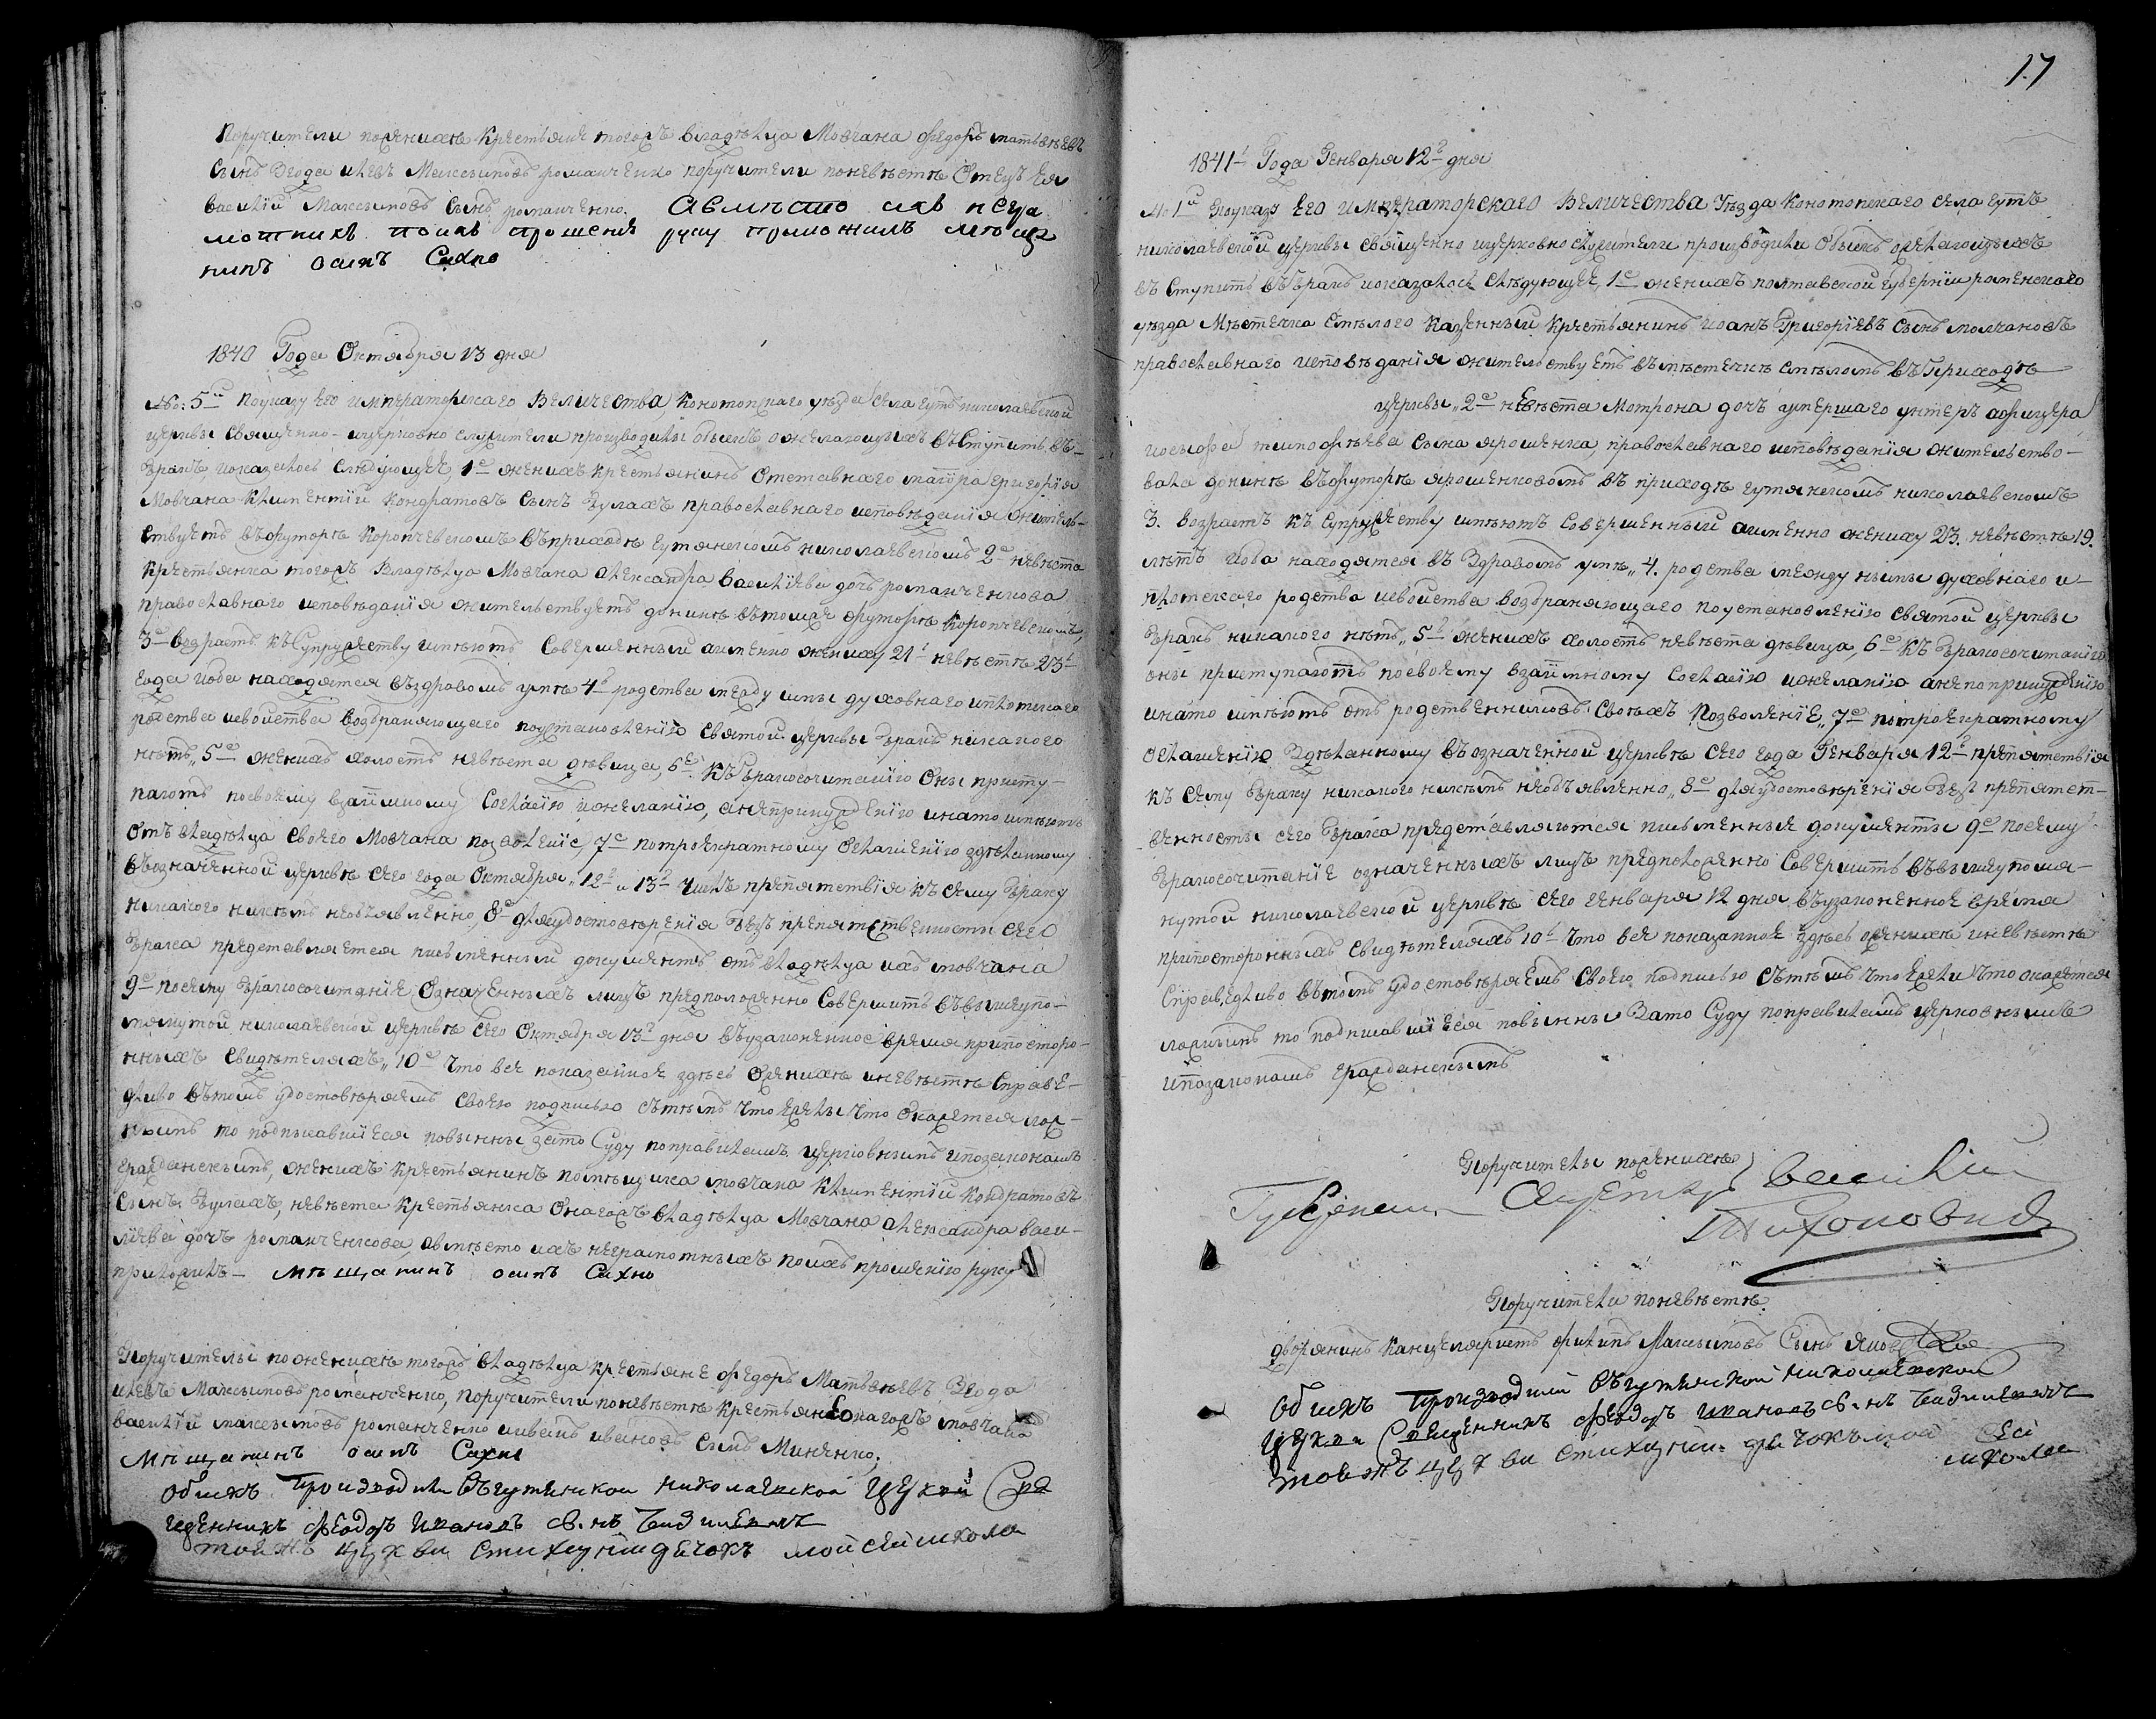 Поручители поженихѣ Крестьяне тогожъ владѣльца Мовчана Федоръ матвѣевъ
Сынъ Згода илевъ Максимовъ романченко поручители поневѣстѣ Отецъ Ея
василій Максимовъ Сынъ романченко. Авмѣсто ихъ негра
мотнихъ поихъ прошенію руку приложилъ мѣща
нинъ осипъ Сахно
1840 Года Октября 13 дня
№: 5й Поуказу Его императорскаго Величества, Конотопскаго уѣзда села гутъ николаевской
церквы Священно-ицерковно служители производилы обыскъ ожелающихъ въСтупить въ-
Бракъ, иоказалось Слѣдующее, 1е женихъ Крестьянинъ Отставнаго маіора григорія
Мовчана Климентій Кондратовъ Сынъ Булахъ православнаго исповѣданія жытель-
Ствуетъ въхуторѣ Коропчевскомъ въприходѣ гутянскомъ николаевскомъ 2е невѣста
Крестьянка тогожъ Владѣльца Мовчана Александра василіева дочь романченкова
православнаго исповѣданія жительствуетъ донинѣ вътомже футорѣ Коропчевскомъ,
3е возрастъ къСупружеству имѣютъ Совершенный аименно жениху 21 невѣстѣ 23
года иоба находятся въздравомъ умѣ 4е родства между имы духовнаго иплотскаго
родства исвойства возбраняющаго поустановленію Святой церквы Бракъ никакого
нѣтъ, 5е женихъ холостъ невѣста дѣвица, 6е КъБракосочитанію Оны присту-
паютъ посвоему взаимному Согласію ижеланію, анепринужденію инато имѣютъ
Отъ владѣльца своего Мовчана позволеніе, 7е потроекратному Оглашенію здѣланному
въозначенной церквѣ сего года Октября 12го и 13го Чиселъ препятствія къ сему Браку
никакого никѣмъ необъявленно, 8е дляудостовѣренія безъ препятственности сего
Брака представляется письменный документъ отъ владѣльца ихъ мовчана
9е посему Бракосочитаніе Означенныхъ лицъ предположенно Совершить въвышеупо-
мянутой николаевской церквѣ сего Октября 13го дня въузаконенное время припосторо-
нныхъ Свидѣтеляхъ, 10е Что все показанное здѣсь Оженихѣ иневѣстѣ Справе-
дливо вътомъ удостовѣряемъ своею подписью сътѣмъ что ежели что окажется лож-
нымъ то подписавшіеся повынны зато Суду поправиламъ церковнымъ ипозаконамъ
гражданскимъ, женихъ Крестьянинъ помѣщика мовчана Климентій Кондратовъ
Сынъ Булахъ, невѣста Крестьянка Онагожъ владѣльца Мовчана Александра васи-
ліева дочь романченкова, авмѣсто ихъ неграмотныхъ поихъ прошенію руку
приложилъ - мѣщанинъ осипъ Сахно
Поручителы поженихѣ тогожъ владѣльца Крестьяне Федоръ Матвѣевъ Згода
илевъ Максимовъ романченко, поручители поневѣстѣ Крестьяне онагожъ мовчана
василій максимовъ романченко иивань ивановъ Сынъ Миненко,
Мѣщанинъ осипъ Сахно
обыскъ производили въгутянской николаевской церкви Свя
щенникъ Феодоръ Ивановъ с.нъ
тоей ж.ъ церкви стихарній дьячокъ мойсей
17
1841 Года Генваря 12го дня
№ 1й Поуказу Его императорскаго Величества Уѣзда Конотопскаго села гутъ
николаевской церквы священно ицерковно служители производили обыскъ ожелающихъ
въ Ступить въБракъ иоказалось слѣдующее, 1е женихъ полтавской губерніи роменского
уѣзда Мѣстечка Смѣлого Казенный Крестьянинъ иоанъ Григоріевъ Сынъ молчановъ
православнаго исповѣданія жительствуетъ въмѣстечкѣ смѣломъ въприходѣ
церквы 2е невѣста Мотрона дочь умершаго унтеръ афицера
иосыфа тимофѣева сына ярошенка, православнаго исповѣданія жительство-
вала донинѣ въфуторѣ ярошенковомъ въ приходѣ гутянскомъ николаевскомъ
3. возрастъ къ Супружеству имѣютъ Совершенный аименно жениху 23. невѣстѣ 19.
лѣтъ иоба находятся въ Здравомъ умѣ, 4. родства между нымы духовнаго и-
плотскаго родства исвойства возбраняющаго поустановленію святой церквы
Бракъ никакого нѣтъ, 5е женихъ холостъ невѣста дѣвица, 6е КъБракосочитанію
оны приступаютъ посвоему взаимному Согласію ижеланію анепопринужденію
инато имѣютъ отъ родственниковъ Своихъ Позволеніе, 7е потроекратному
оглашенію Здѣланному въозначенной церквѣ сего года Генваря 12го препятствія
къ сему Браку никакого никѣмъ необъявленно, 8е дляудостовѣренія Безъ препятст-
венносты сего Брака представляются письменныя документы 9е посему
Бракосочитаніе означенныхъ лицъ предположенно Совершить въвышеупомя-
нутой николаевской церквѣ сего генваря 12 дня въузаконенное время
припостороннихъ свидѣтеляхъ 10е Что все показанное здѣсь оженихѣ иневѣстѣ
Справедливо вътомъ удостовѣряемъ своею подписью сътѣмъ что ежели что окажется
ложнымъ то подписавшіеся повынны Зато Суду поправиламъ церковнымъ
ипозаконамъ гражданскимъ
Поручителы поженихѣ
Губернскій Секретарь Василій
Тихоновичъ
Поручители поневѣстѣ
дворянинъ Канцеляристъ филипъ Максимовъ Сынъ
обыскъ производили въгутянской николаевской
церкви Священникъ Феодоръ Ивановъ с.нъ
тоей жъ церкви стихарній дьячокъ мойсей